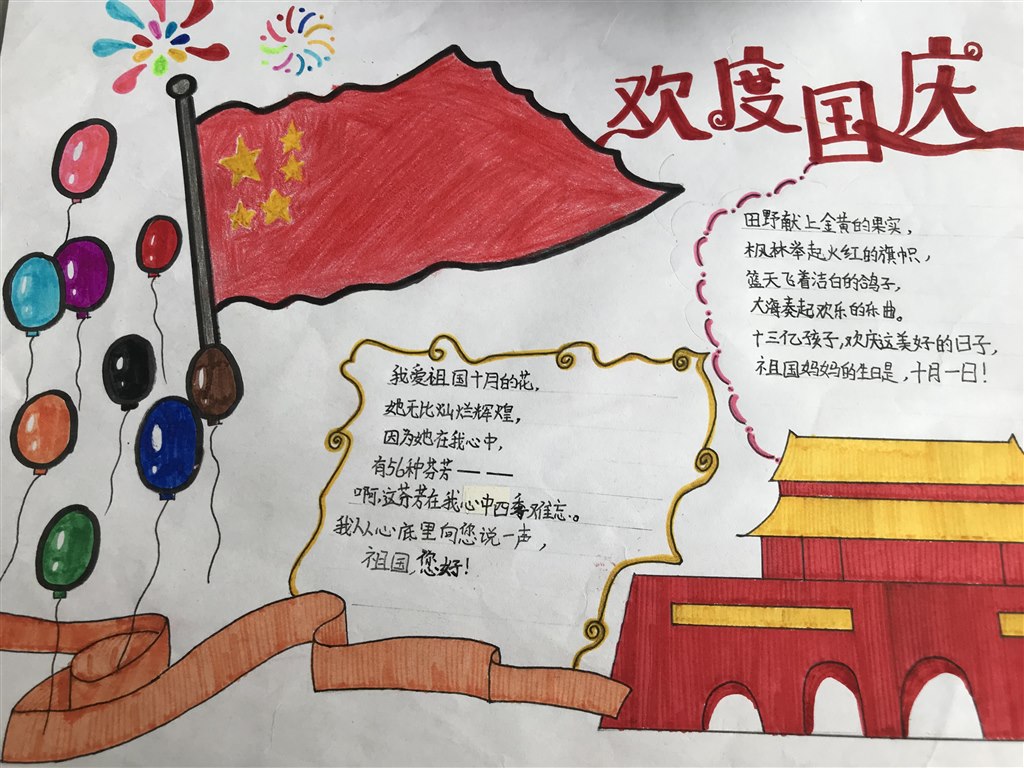 欢度国庆
田野献上金黄的果实，
枫林举起火红的旗帜，
蓝天飞着洁白的鸽子，
大海奏起欢乐的乐曲。
十三亿孩子，欢庆这美好的日子，
祖国妈妈的生日是，十月一日！
我爱祖国十月的花，
她无比灿烂辉煌，
因为她在我心中，
有56种芬芳———
啊，这芬芳在我心中四季难忘。
我从心底里向您说一声，
祖国，您好！